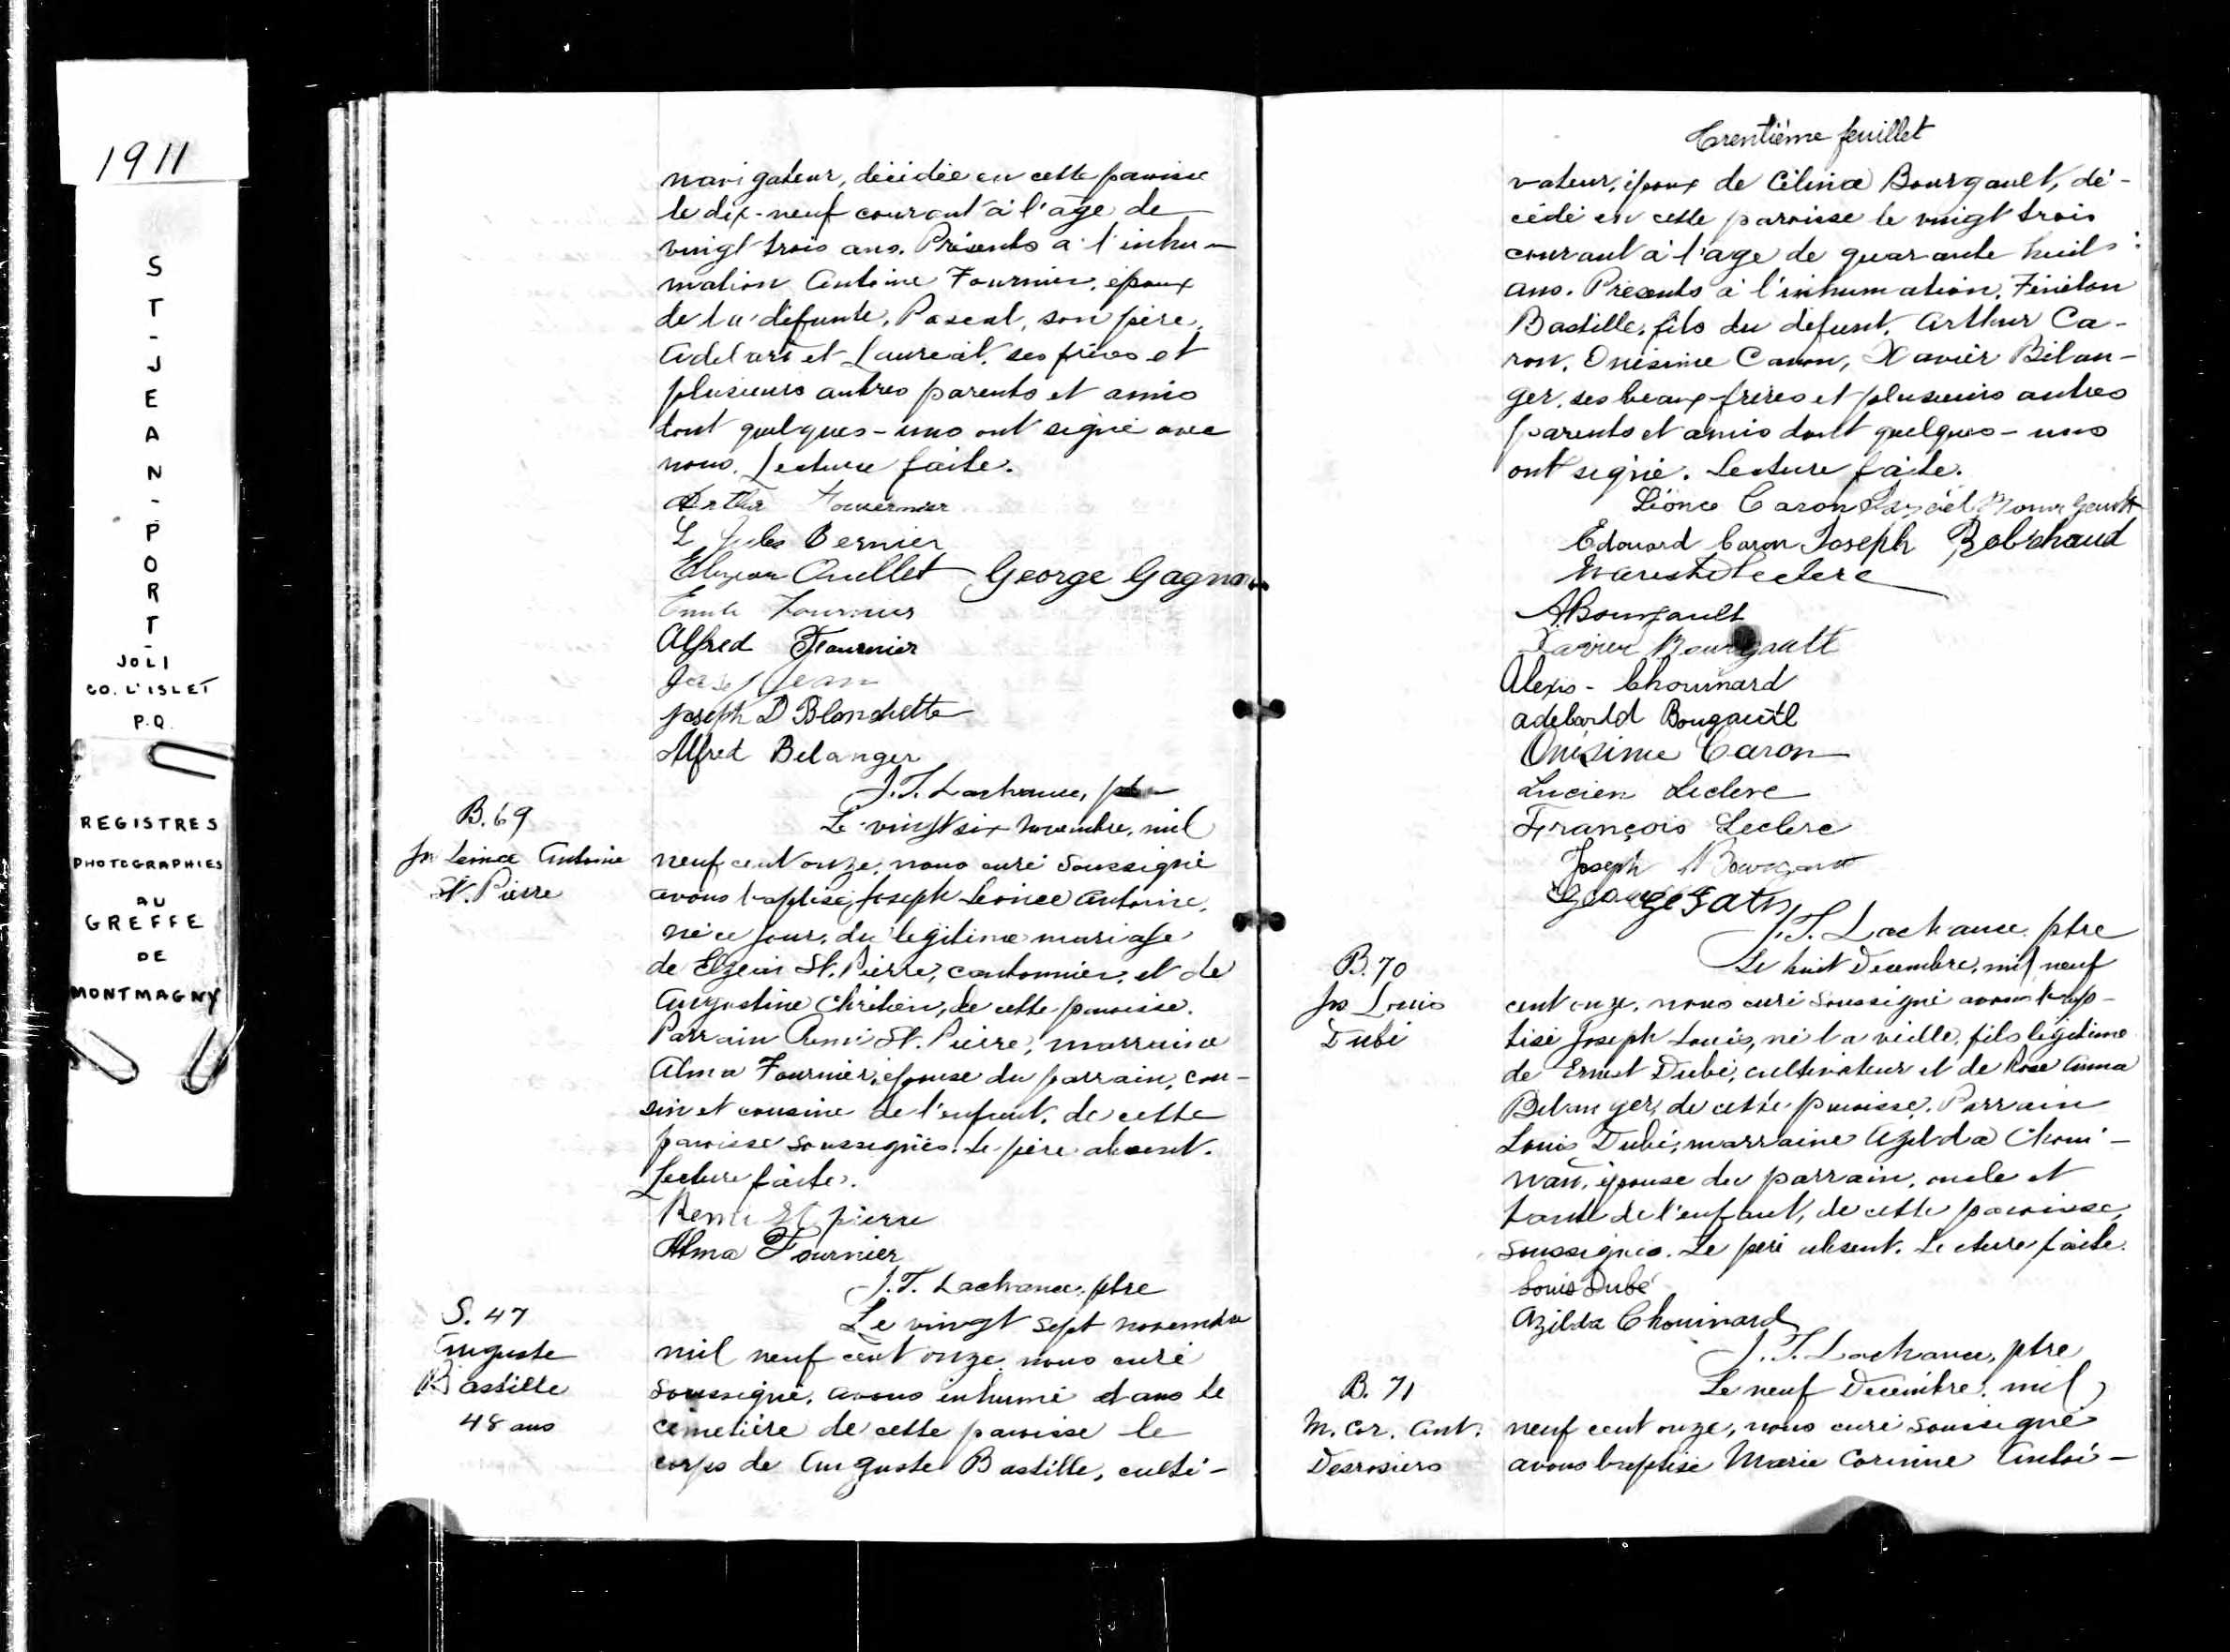 1911
ST-JEAN-PORT-
JOLI
CO. L'ISLET
P.Q.
REGISTRES
PHOTOGRAPHIES
AU
GREFFE
DE
MONTMAGNY
navigateur, décédée en cette paroisse
le dix-neuf courant à l'âge de
vingt trois ans. Présents à l'inhu-
mation Antoine Fournier, époux
de la défunte, Pascal, son père,
Adelard et Lauréat, ses frères et
plusieurs autres parents et amis
dont quelques-uns ont signé avec
nous. Lecture faite.
Arthur
L Jules Bernier
Elzear Ouellet George Gagnon
Emile Fournier
Alfred Fournier
Jos Jean
Joseph D Blanchette
Alfred Belanger
J.T. Lachance, ptre
B.69
Jos Léonce Antoine
St. Pierre
Le vingt six novembre, mil
neuf cent onze, nous curé soussigné
avons baptisé Joseph Léonce Antoine,
né ce jour, du légitime mariage
de Elzear St. Pierre, cantonnier, et de
Augustine Chrétien, de cette paroisse.
Parrain Rémi St. Pierre, marraine
Alma Fournier, épouse du parrain, cou-
sin et cousine de l'enfant, de cette
paroisse soussignés. Le père absent.
Lecture faite.
Remi St pierre
Alma Fournier
J.T. Lachance, ptre
S. 47
Auguste
Bastille
48 ans
Le vingt sept novembre
mil neuf cent onze, nous curé
soussigné, avons inhumé dans le
cimetière de cette paroisse le
corps de Auguste Bastille, culti-
Trentième feuillet
vateur, époux de Célina Bourgault, dé-
cédé en cette paroisse le vingt trois
courant à l'age de quarante huit
ans. Présents à l'inhumation, Fénélon
Bastille, fils du défunt, Arthur Ca-
ron, Onésime Caron, Xavier Bélan-
ger, ses beaux-frères et plusieurs autres
parents et amis dont quelques-uns
ont signé. Lecture faite.
Léonce Caron Bourgault
Edouard Caron Joseph Robichaud
Leclerc
A Bourgault
Xavier Bourgault
Alexis-Chouinard
adelarld Bougault
Onésime Caron
Lucien Leclerc
François Leclerc
Joseph
George
J.T. Lachance ptre
B.70
Jos Louis
Dubé
Le huit Decembre, mil neuf
cent onze, nous curé soussigné avons bap-
tisé Joseph Louis, né la veille, fils légitime
de Ernest Dubé, cultivateur et de Rose Anna
Belanger, de cette paroisse. Parrain
Louis Dubé, marraine Azilda Choui-
nard, épouse du parrain, oncle et
tante de l'enfant, de cette paroisse,
soussignés. Le père absent. Lecture faite.
Louis Dubé
Azilda Chouinard
J.T. Lachance, ptre
B. 71
M. Cor. Ant.
Desrosiers
Le neuf Decembre, mil
neuf cent onze, nous curé soussigné
avons baptisé Marie Corinne Antoi-